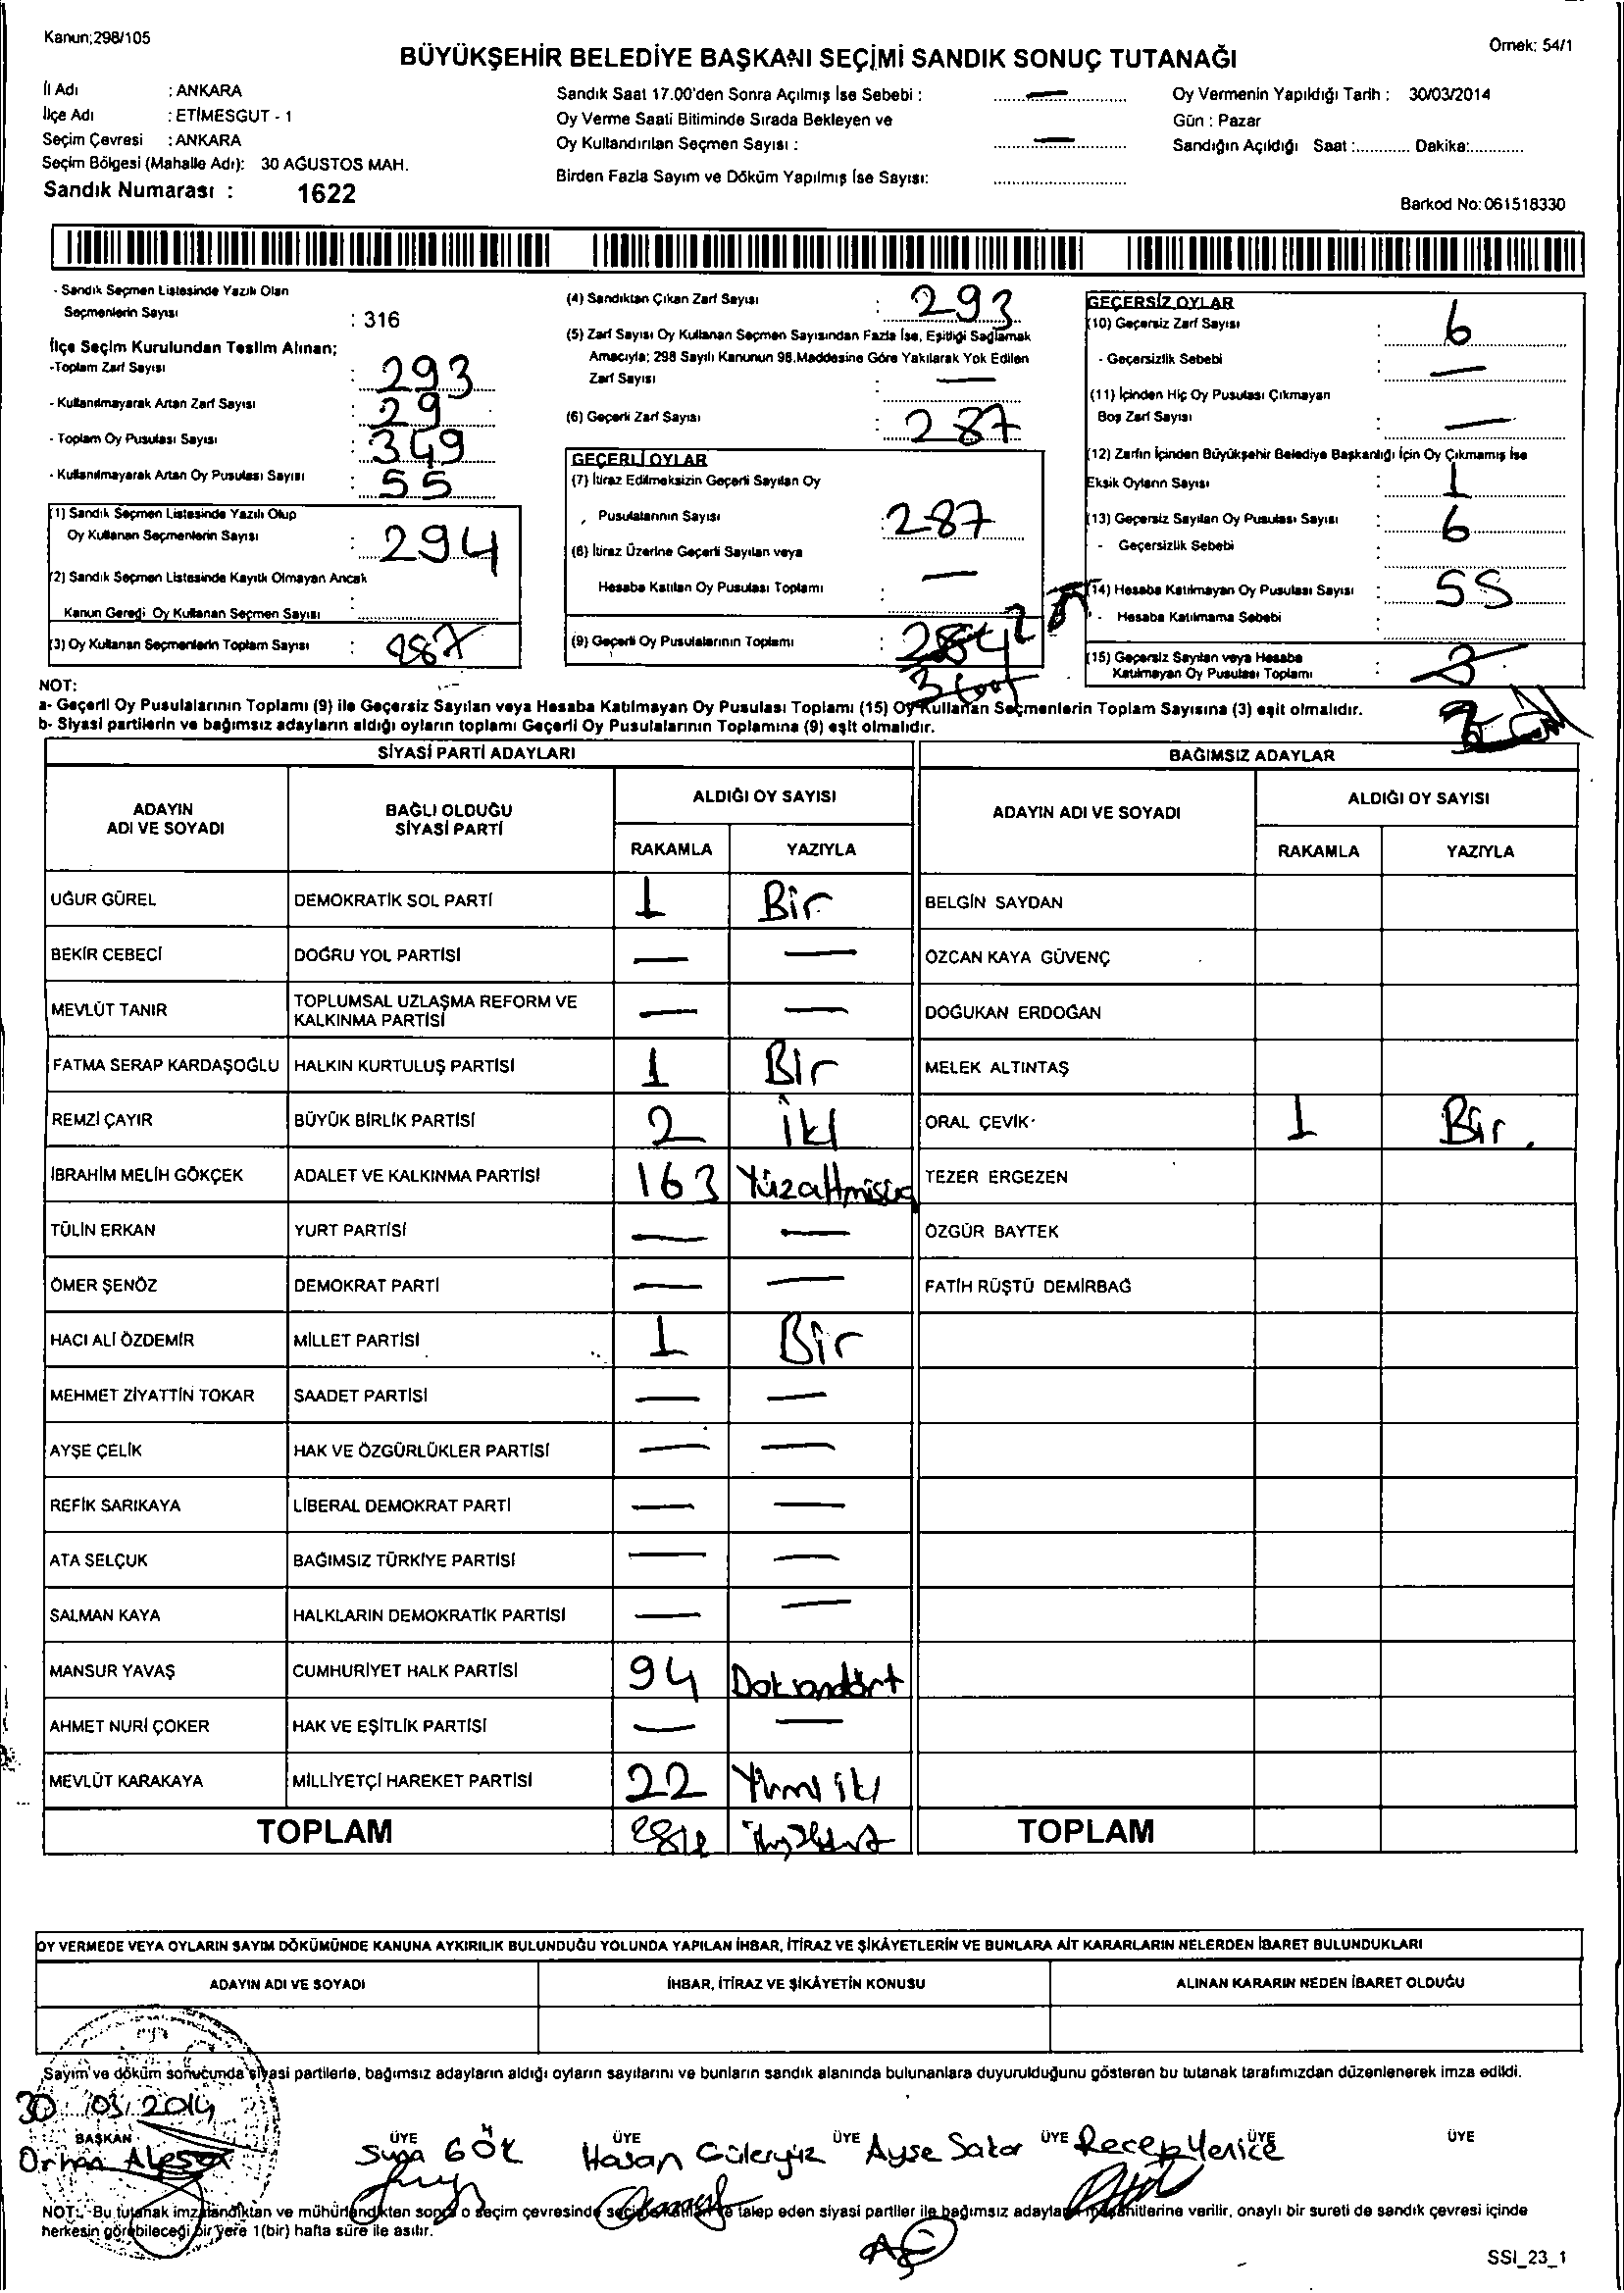 Kanun;298/105
Örnek: 54/1
BÜYÜKŞEHİR BELEDİYE BAŞKANI SEÇİMİ SANDIK SONUÇ TUTANAĞI
İl Adı : ANKARA
İlçe Adı : ETİMESGUT - 1
Seçim Çevresi : ANKARA
Seçim Bölgesi (Mahalle Adı): 30 AĞUSTOS MAH.
Sandık Numarası : 1622
Sandık Saat 17.00'den Sonra Açılmış İse Sebebi : —
Oy Verme Saati Bitiminde Sırada Bekleyen ve
Oy Kullandırılan Seçmen Sayısı : —
Birden Fazla Sayım ve Döküm Yapılmış İse Sayısı:
Oy Vermenin Yapıldığı Tarih : 30/03/2014
Gün : Pazar
Sandığın Açıldığı Saat :............ Dakika:............
Barkod No: 061518330
- Sandık Seçmen Listesinde Yazılı Olan
Seçmenlerin Sayısı : 316
İlçe Seçim Kurulundan Teslim Alınan;
-Toplam Zarf Sayısı : 293
- Kullanılmayarak Artan Zarf Sayısı : 29
- Toplam Oy Pusulası Sayısı : 349
- Kullanılmayarak Artan Oy Pusulası Sayısı : 55
(1) Sandık Seçmen Listesinde Yazılı Olup
Oy Kullanan Seçmenlerin Sayısı : 294
(2) Sandık Seçmen Listesinde Kayıtlı Olmayan Ancak
Kanun Gereği Oy Kullanan Seçmen Sayısı :
(3) Oy Kullanan Seçmenlerin Toplam Sayısı : 287
(4) Sandıktan Çıkan Zarf Sayısı : 293
(5) Zarf Sayısı Oy Kullanan Seçmen Sayısından Fazla İse, Eşitliği Sağlamak
Amacıyla; 298 Sayılı Kanunun 98.Maddesine Göre Yakılarak Yok Edilen
Zarf Sayısı : —
(6) Geçerli Zarf Sayısı : 287
GEÇERLİ OYLAR
(7) İtiraz Edilmeksizin Geçerli Sayılan Oy
Pusulalarının Sayısı : 287
(8) İtiraz Üzerine Geçerli Sayılan veya
Hesaba Katılan Oy Pusulası Toplamı : —
(9) Geçerli Oy Pusulalarının Toplamı : 284
GEÇERSİZ OYLAR
(10) Geçersiz Zarf Sayısı : 6
- Geçersizlik Sebebi : —
(11) İçinden Hiç Oy Pusulası Çıkmayan
Boş Zarf Sayısı : —
(12) Zarfın İçinden Büyükşehir Belediye Başkanlığı İçin Oy Çıkmamış İse
Eksik Oyların Sayısı : 1
(13) Geçersiz Sayılan Oy Pusulası Sayısı : 6
- Geçersizlik Sebebi :
(14) Hesaba Katılmayan Oy Pusulası Sayısı : 55
- Hesaba Katılmama Sebebi :
(15) Geçersiz Sayılan veya Hesaba
Katılmayan Oy Pusulası Toplamı : 3
NOT:
a- Geçerli Oy Pusulalarının Toplamı (9) ile Geçersiz Sayılan veya Hesaba Katılmayan Oy Pusulası Toplamı (15) Oy Kullanan Seçmenlerin Toplam Sayısına (3) eşit olmalıdır.
b- Siyasi partilerin ve bağımsız adayların aldığı oyların toplamı Geçerli Oy Pusulalarının Toplamına (9) eşit olmalıdır.
SİYASİ PARTİ ADAYLARI
ADAYIN ADI VE SOYADI
BAĞLI OLDUĞU SİYASİ PARTİ
ALDIĞI OY SAYISI
RAKAMLA YAZIYLA
UĞUR GÜREL DEMOKRATİK SOL PARTİ 1 Bir
BEKİR CEBECİ DOĞRU YOL PARTİSİ — —
MEVLÜT TANIR TOPLUMSAL UZLAŞMA REFORM VE KALKINMA PARTİSİ — —
FATMA SERAP KARDAŞOĞLU HALKIN KURTULUŞ PARTİSİ 1 Bir
REMZİ ÇAYIR BÜYÜK BİRLİK PARTİSİ 2 İki
İBRAHİM MELİH GÖKÇEK ADALET VE KALKINMA PARTİSİ 163 Yüzaltmışüç
TÜLİN ERKAN YURT PARTİSİ — —
ÖMER ŞENÖZ DEMOKRAT PARTİ — —
HACI ALİ ÖZDEMİR MİLLET PARTİSİ 1 Bir
MEHMET ZİYATTİN TOKAR SAADET PARTİSİ — —
AYŞE ÇELİK HAK VE ÖZGÜRLÜKLER PARTİSİ — —
REFİK SARIKAYA LİBERAL DEMOKRAT PARTİ — —
ATA SELÇUK BAĞIMSIZ TÜRKİYE PARTİSİ — —
SALMAN KAYA HALKLARIN DEMOKRATİK PARTİSİ — —
MANSUR YAVAŞ CUMHURİYET HALK PARTİSİ 94 Doksandört
AHMET NURİ ÇOKER HAK VE EŞİTLİK PARTİSİ — —
MEVLÜT KARAKAYA MİLLİYETÇİ HAREKET PARTİSİ 22 Yirmi iki
TOPLAM 284
BAĞIMSIZ ADAYLAR
ADAYIN ADI VE SOYADI
ALDIĞI OY SAYISI
RAKAMLA YAZIYLA
BELGİN SAYDAN
ÖZCAN KAYA GÜVENÇ
DOĞUKAN ERDOĞAN
MELEK ALTINTAŞ
ORAL ÇEVİK 1 Bir.
TEZER ERGEZEN
ÖZGÜR BAYTEK
FATİH RÜŞTÜ DEMİRBAĞ
TOPLAM
OY VERMEDE VEYA OYLARIN SAYIM DÖKÜMÜNDE KANUNA AYKIRILIK BULUNDUĞU YOLUNDA YAPILAN İHBAR, İTİRAZ VE ŞİKÂYETLERİN VE BUNLARA AİT KARARLARIN NELERDEN İBARET BULUNDUKLARI
ADAYIN ADI VE SOYADI
İHBAR, İTİRAZ VE ŞİKÂYETİN KONUSU
ALINAN KARARIN NEDEN İBARET OLDUĞU
Sayım ve döküm sonucunda siyasi partilerle, bağımsız adayların aldığı oyların sayılarını ve bunların sandık alanında bulunanlara duyurulduğunu gösteren bu tutanak tarafımızdan düzenlenerek imza edildi.
30.03.2014
BAŞKAN ÜYE ÜYE ÜYE ÜYE ÜYE
Orhan Suna GÖK Hasan Güleryüz Ayşe Recep Yenice
NOT: Bu tutanak imzalandıktan ve mühürlendikten sonra o seçim çevresinde seçime katılan ve talep eden siyasi partiler ile bağımsız adayların müşahitlerine verilir, onaylı bir sureti de sandık çevresi içinde
herkesin görebileceği bir yere 1(bir) hafta süre ile asılır.
SSI_23_1